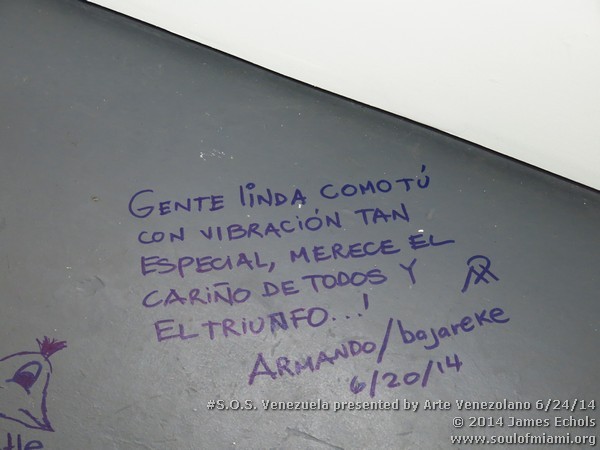 GENTE lINDA COMO TÚ
CON VIBRACIÓN TAN
ESPECIAL, MERECE EL
CARIÑO DE TODOS Y
EL TRIUNFO...!
ARMANDO/bajareke
6/20/14
tle
#S.O.S. Venezuela presented by Arte Venezolano 6/24/14
© 2014 James Echols
www.soulofmiami.org